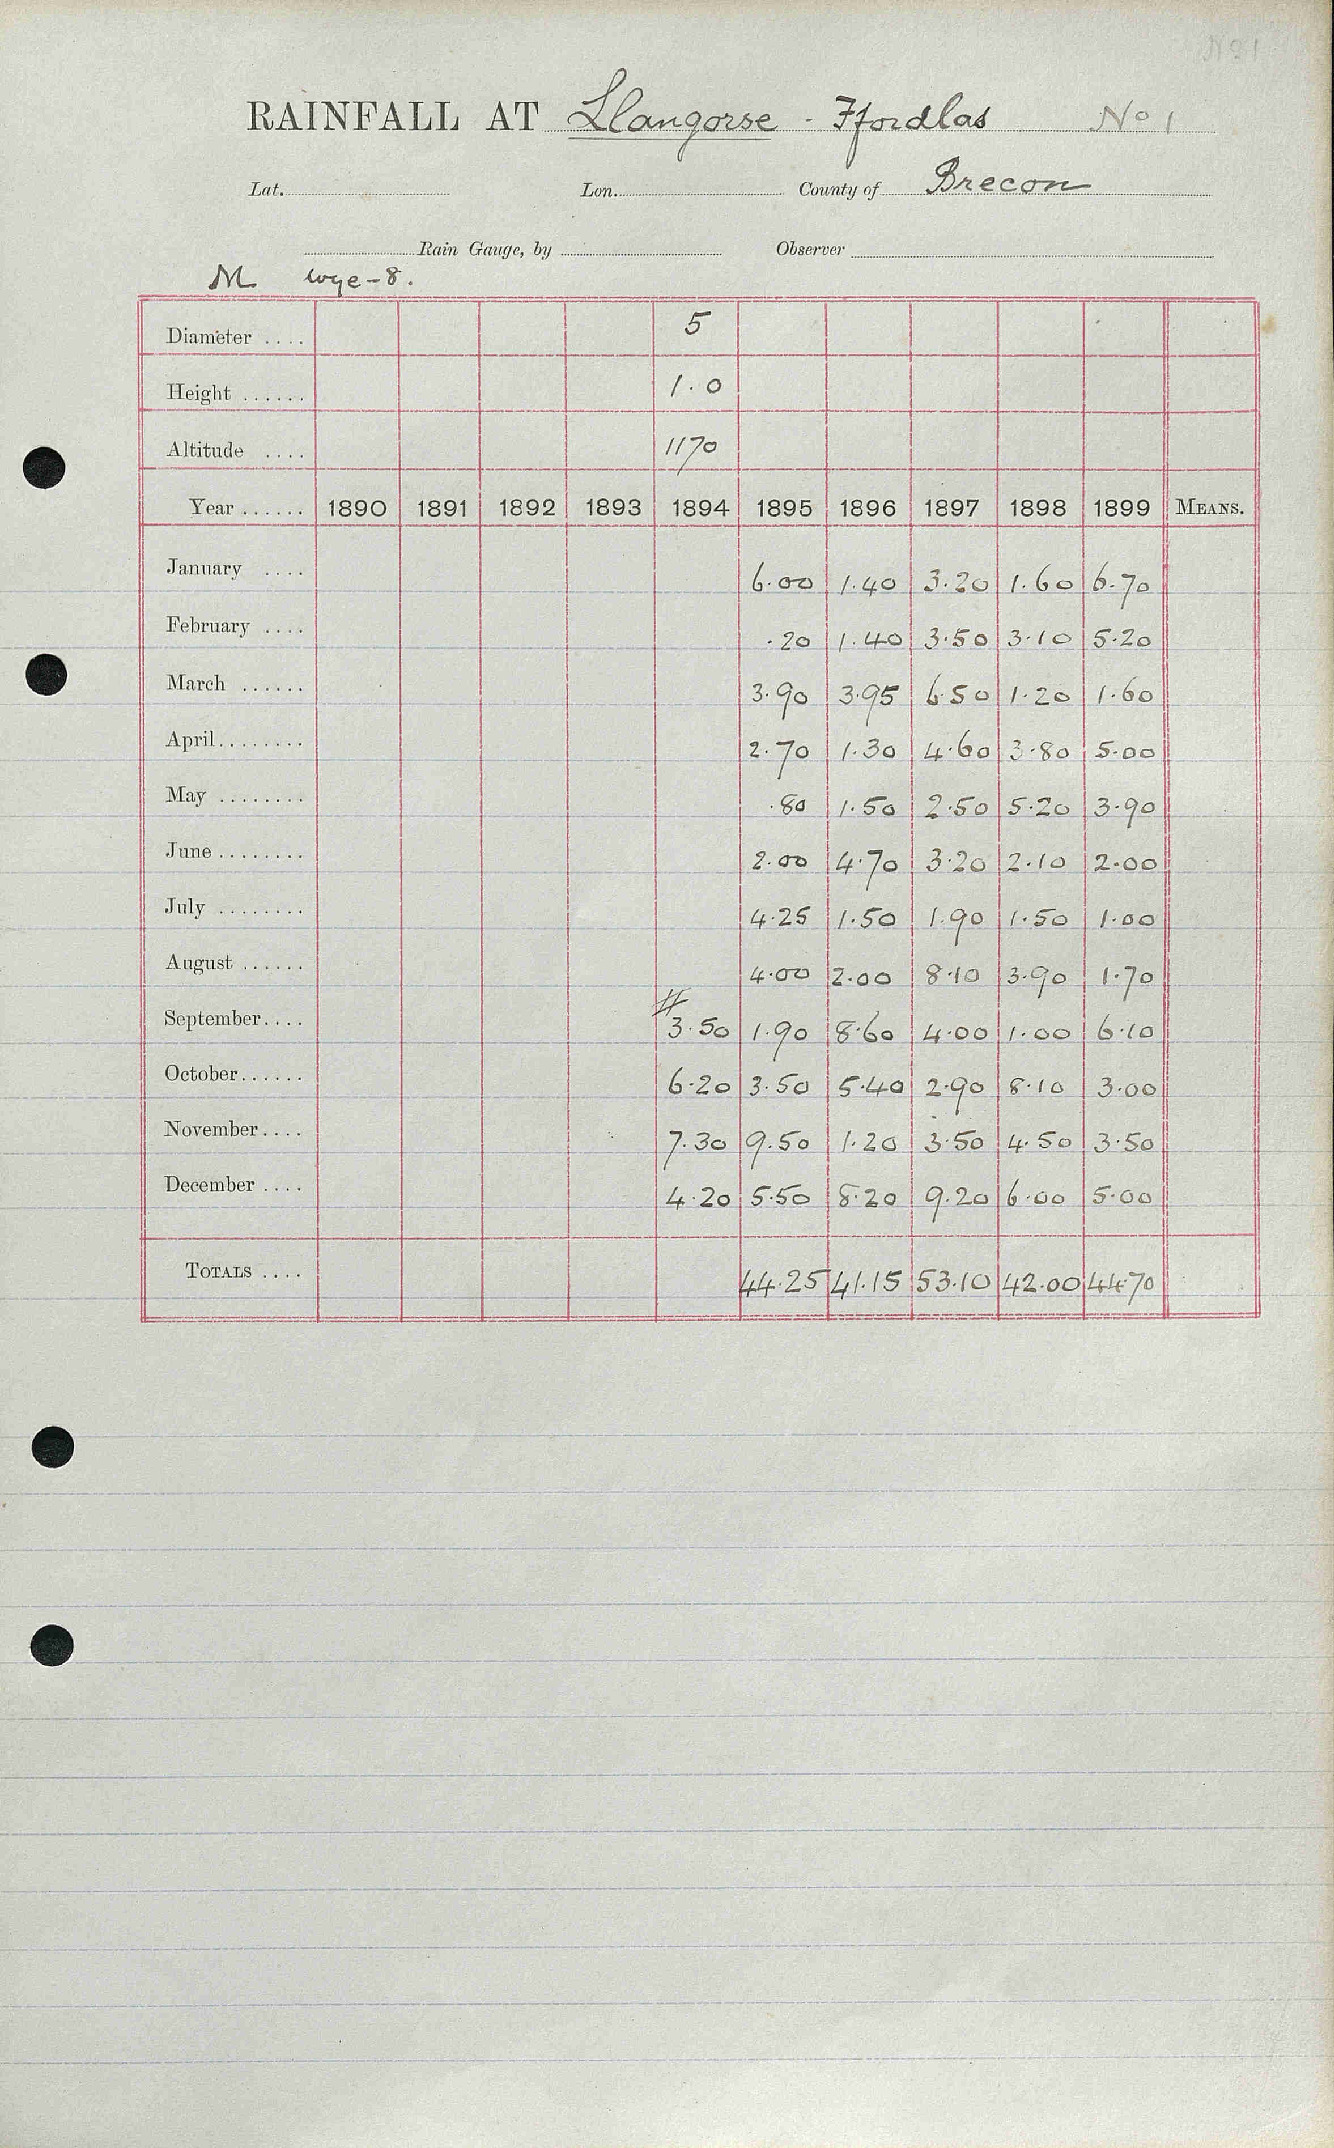 No 1
RAINFALL AT Llangorse - Ffordlas No 1
Lat. Lon. County of Brecon
Rain Gauge, by Observer
M Wye-8.
Diameter .... 5
Height ...... 1.0
Altitude .... 1170
Year ...... 1890 1891 1892 1893 1894 1895 1896 1897 1898 1899 MEANS.
January .... 6.00 1.40 3.20 1.60 6.70
February .... .20 1.40 3.50 3.10 5.20
March ...... 3.90 3.95 6.50 1.20 1.60
April........ 2.70 1.30 4.60 3.80 5.00
May ........ .80 1.50 2.50 5.20 3.90
June ........ 2.00 4.70 3.20 2.10 2.00
July ........ 4.25 1.50 1.90 1.50 1.00
August ...... 4.00 2.00 8.10 3.90 1.70
September.... # 3.50 1.90 8.60 4.00 1.00 6.10
October...... 6.20 3.50 5.40 2.90 8.10 3.00
November.... 7.30 9.50 1.20 3.50 4.50 3.50
December .... 4.20 5.50 8.20 9.20 6.00 5.00
TOTALS .... 44.25 41.15 53.10 42.00 44.70